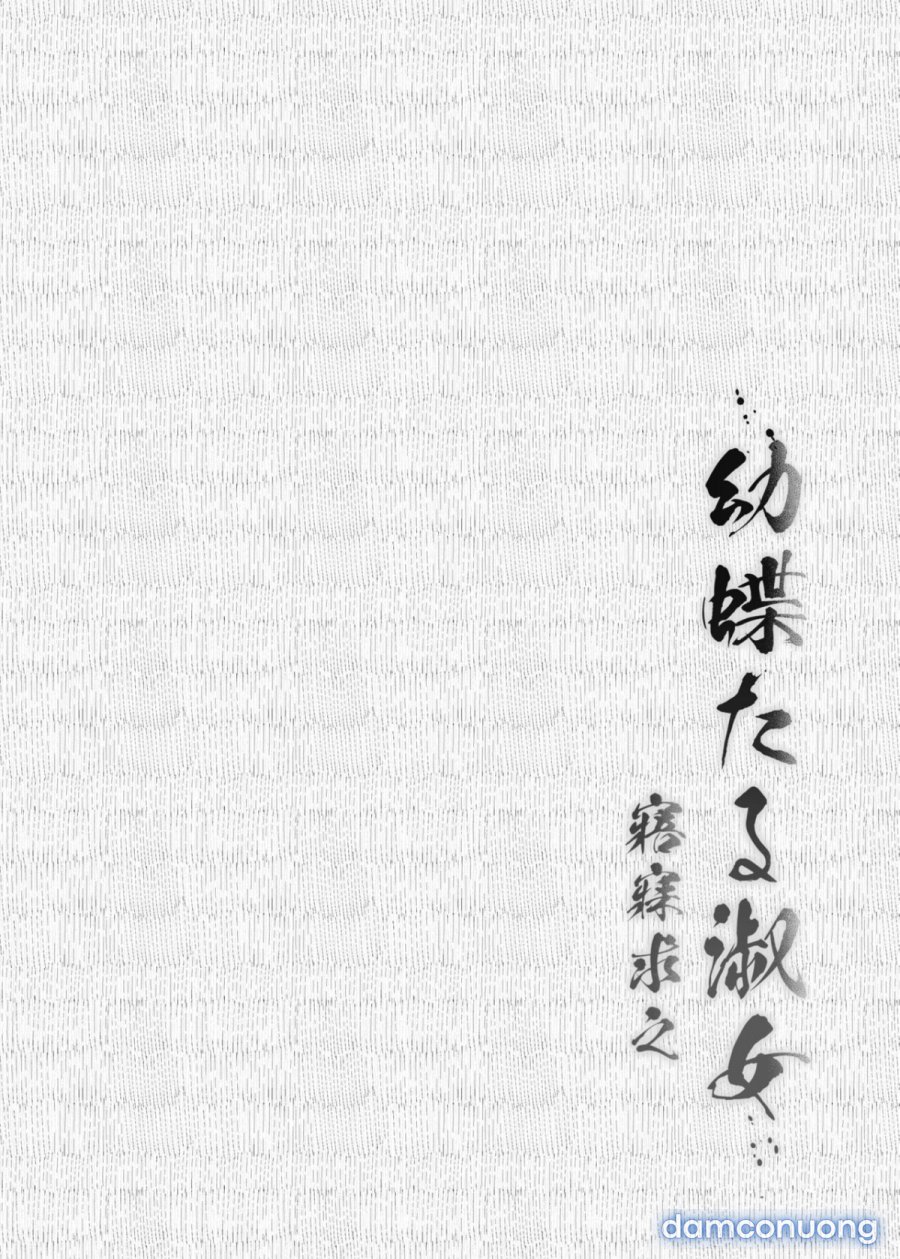 幼蝶たる淑女
寤寐求之
damconuong